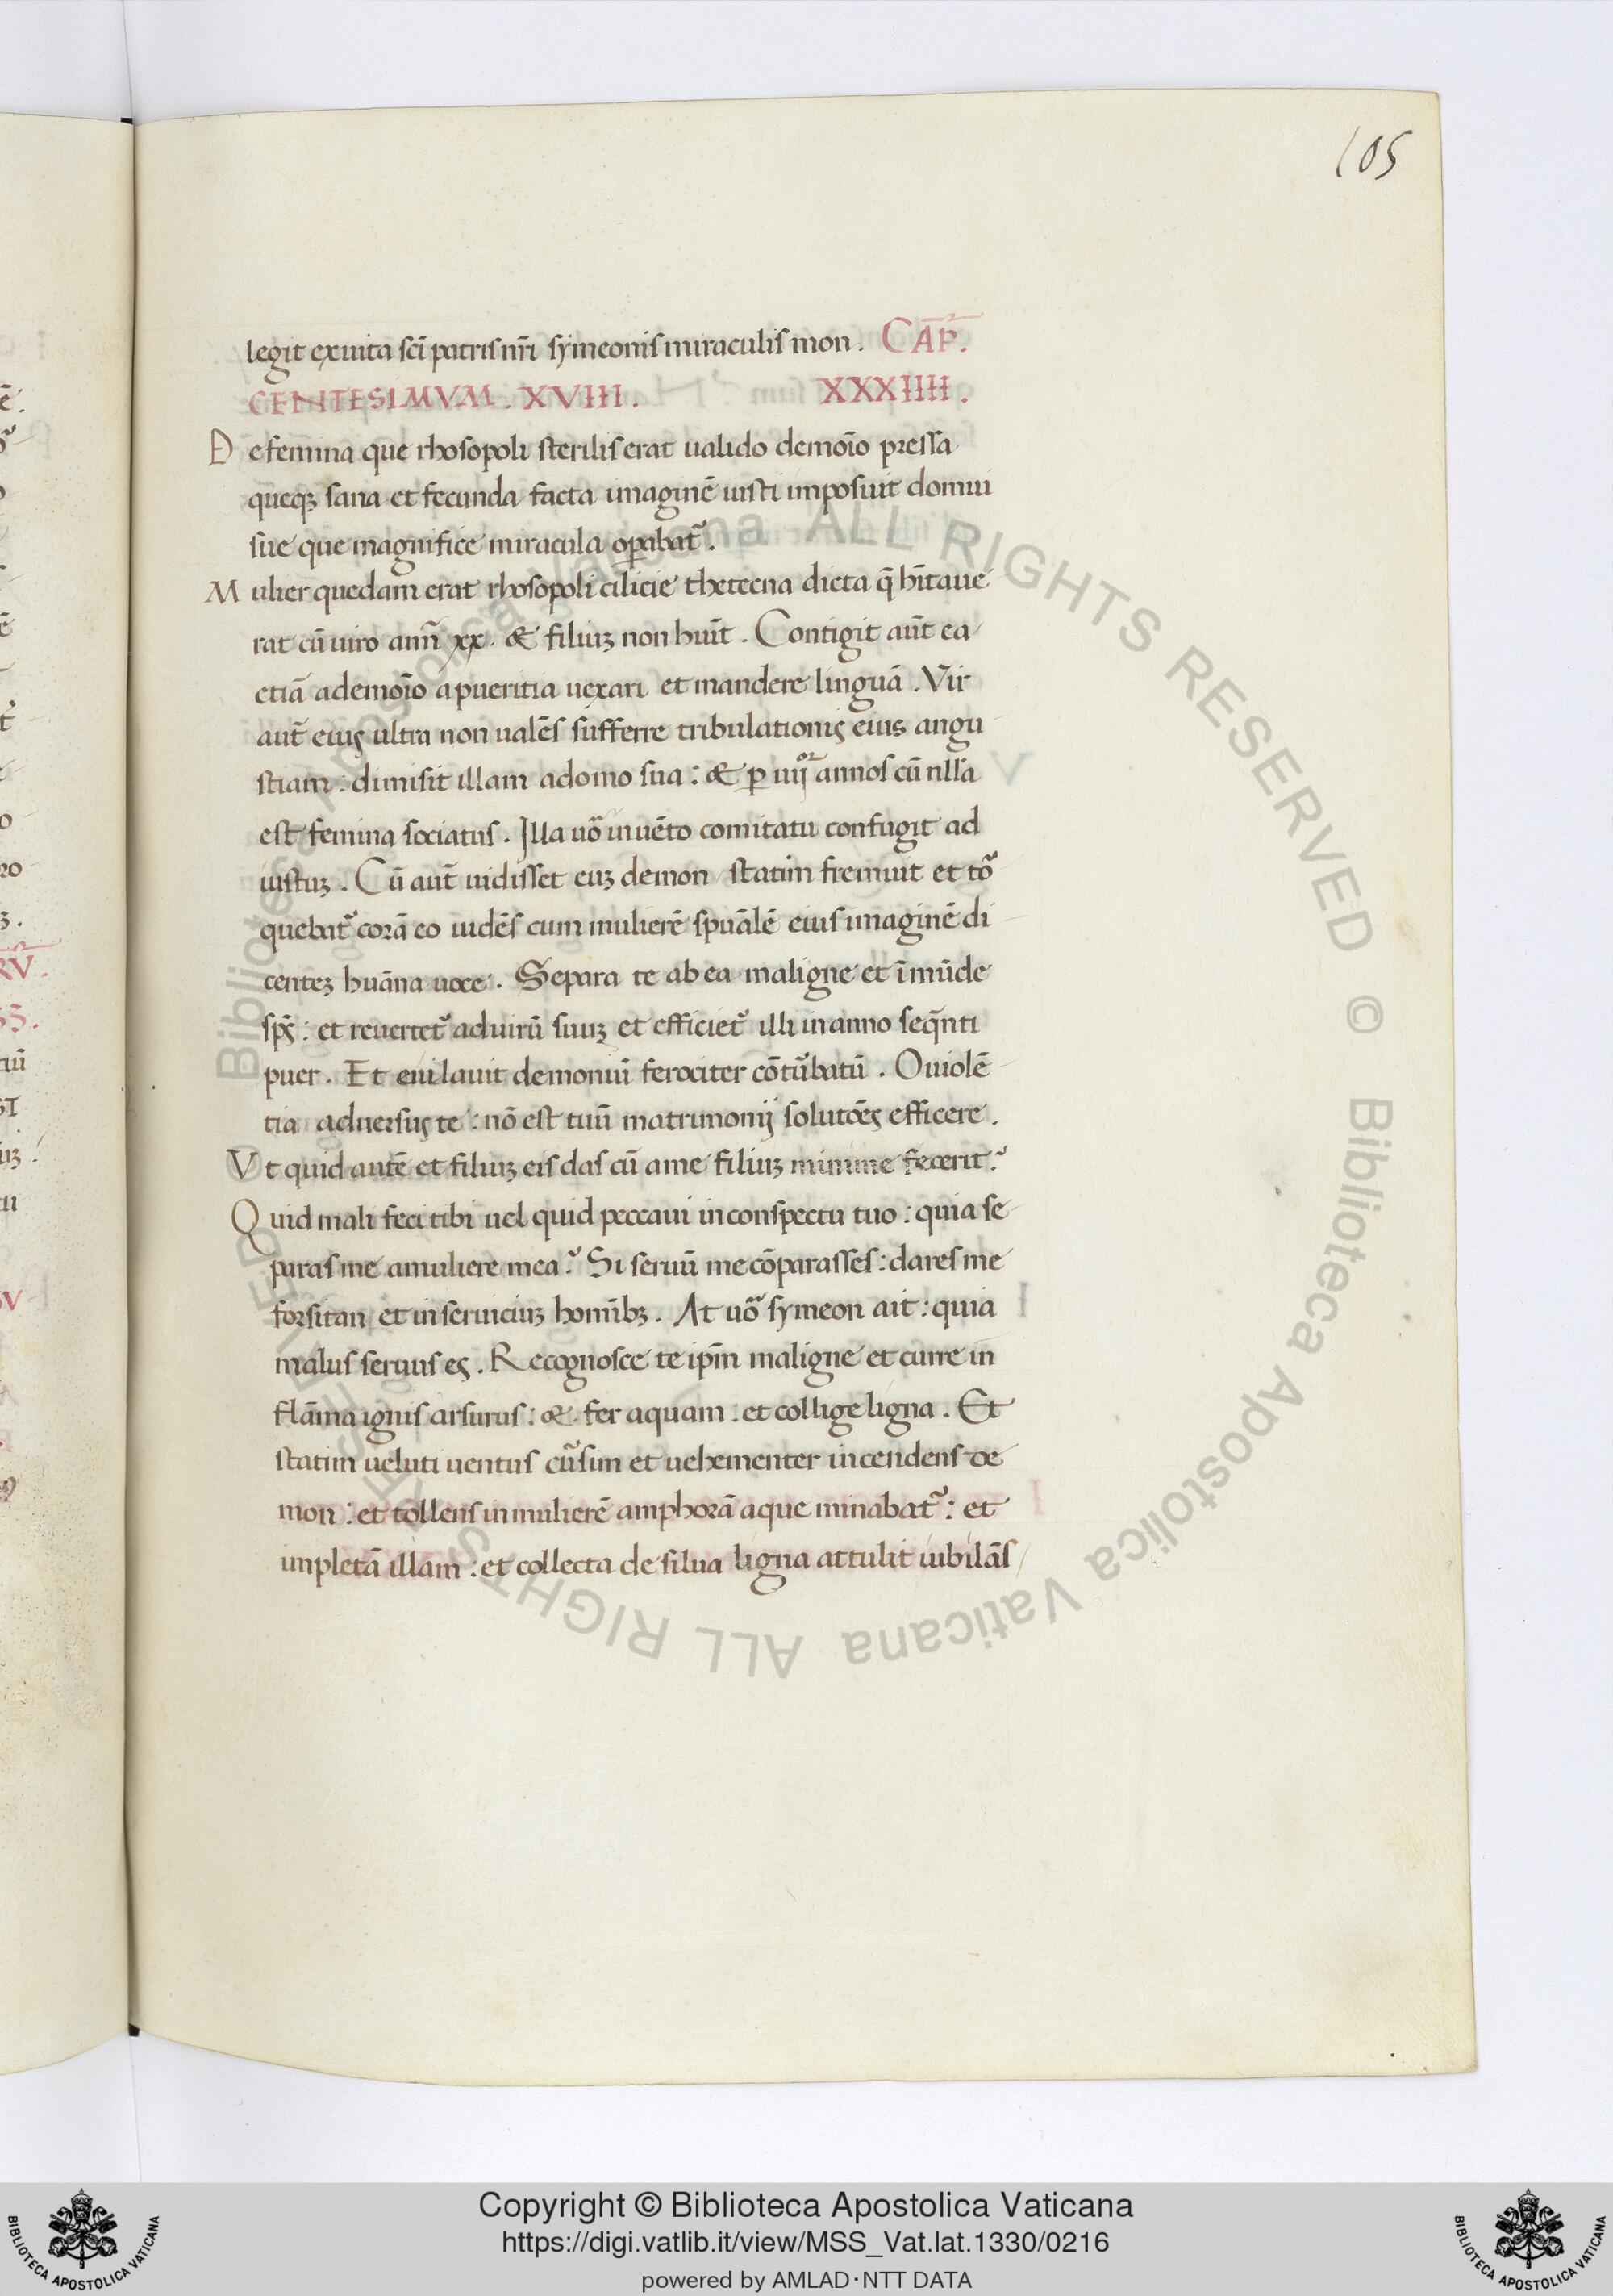 105
legit ex uita scī patris nr̄i symeonis miraculis mon. CAP̄.
CENTESIMVM. XVIII. XXXIIII.
De femina que rhosopoli sterilis erat ualido demoīo pressa
queqȝ sana et fecunda facta imaginē iusti imposuit domui
sue que magnifice miracula oꝑabat᷑.
Mulier quedam erat rhosopoli cilicie thetecna dicta q̄ hītaue
rat cū uiro ann̄ xx. & filiuȝ non huīt. Contigit aūt ea
etiā a demoīo a pueritia uexari et mandere linguā. Vir
aūt eius ultra non ualēs sufferre tribulationis eius angu
stiam: dimisit illam a domo sua: & ꝑ iiijor annos cū nlla
est femina sociatus. Illa uō inuēto comitatu confugit ad
iustuȝ. Cū aūt uidisset euȝ demon statim fremuit et to᷑
quebat᷑ corā eo uidēs cum mulierē spūalē eius imaginē di
centeȝ huāna uoce. Separa te ab ea maligne et ī mūde
sp̄s: et reuertet᷑ ad uirū suuȝ et efficiet᷑ illi in anno seq̄nti
puer. Et eiulauit demoniū ferociter cōt᷑batū. O uiolē
tia aduersus te: nō est tuū matrimonij solutōes efficere.
Vt quid autē et filiuȝ eis das cū a me filiuȝ minime fecerit?
Quid mali feci tibi uel quid peccaui in conspectu tuo: quia se
paras me a muliere mea? Si seruū me cōparasses: dares me
forsitan et in seruiciuȝ homībȝ. At uō symeon ait: quia
malus seruus es. Recognosce te ip̄m maligne et curre in
flāma ignis arsurus: & fer aquam: et collige ligna. Et
statim ueluti uentus cu᷑sim et uehementer incendens de
mon: et tollens in mulierē amphorā aque minabat᷑: et
impletā illam: et collecta de silua ligna attulit iubilās
© Biblioteca Apostolica Vaticana ALL RIGHTS RESERVED
© Biblioteca Apostolica Vaticana ALL RIGHTS RESERVED
Copyright © Biblioteca Apostolica Vaticana
https://digi.vatlib.it/view/MSS_Vat.lat.1330/0216
powered by AMLAD·NTT DATA
BIBLIOTECA APOSTOLICA VATICANA
BIBLIOTECA APOSTOLICA VATICANA